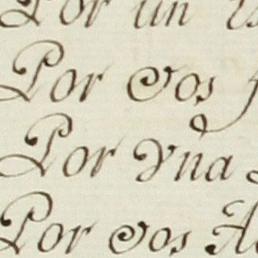 Por un
Por dos
Por Vna
Por dos